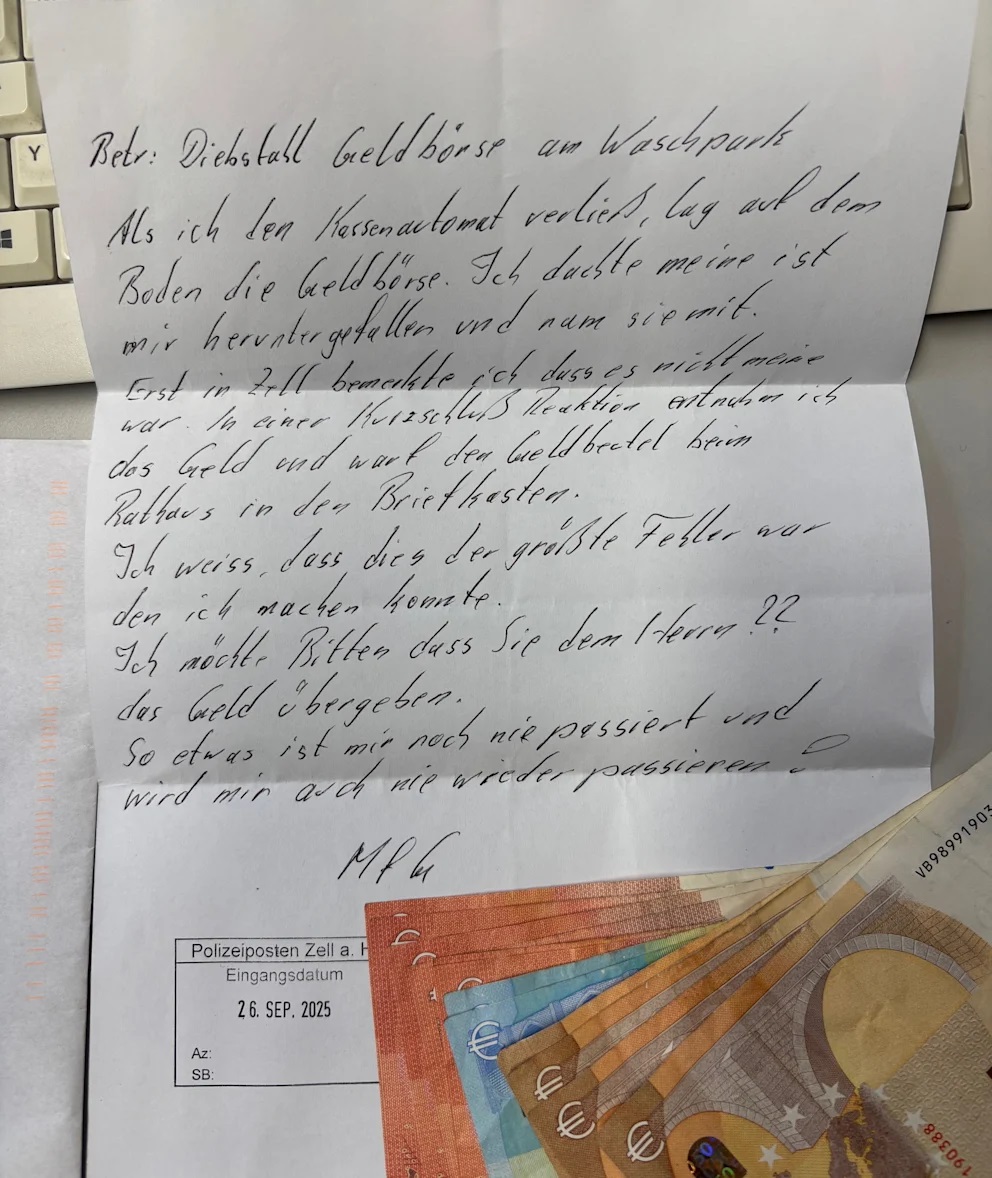 Y
Betr: Diebstahl Geldbörse am Waschpark
Als ich den Kassenautomat verließ, lag auf dem
Boden die Geldbörse. Ich dachte meine ist
mir heruntergefallen und nam sie mit.
Erst in Zell bemerkte ich dass es nicht meine
war. In einer Kurzschluß Reaktion entnahm ich
das Geld und warf den Geldbeutel beim
Rathaus in den Briefkasten.
Ich weiss, dass dies der größte Fehler war
den ich machen konnte.
Ich möchte Bitten dass Sie dem Herrn ??
das Geld übergeben.
So etwas ist mir noch nie passiert und
wird mir auch nie wieder passieren!
MfG
Polizeiposten Zell a. H
Eingangsdatum
26. SEP. 2025
Az:
SB:
VB98991903
190388